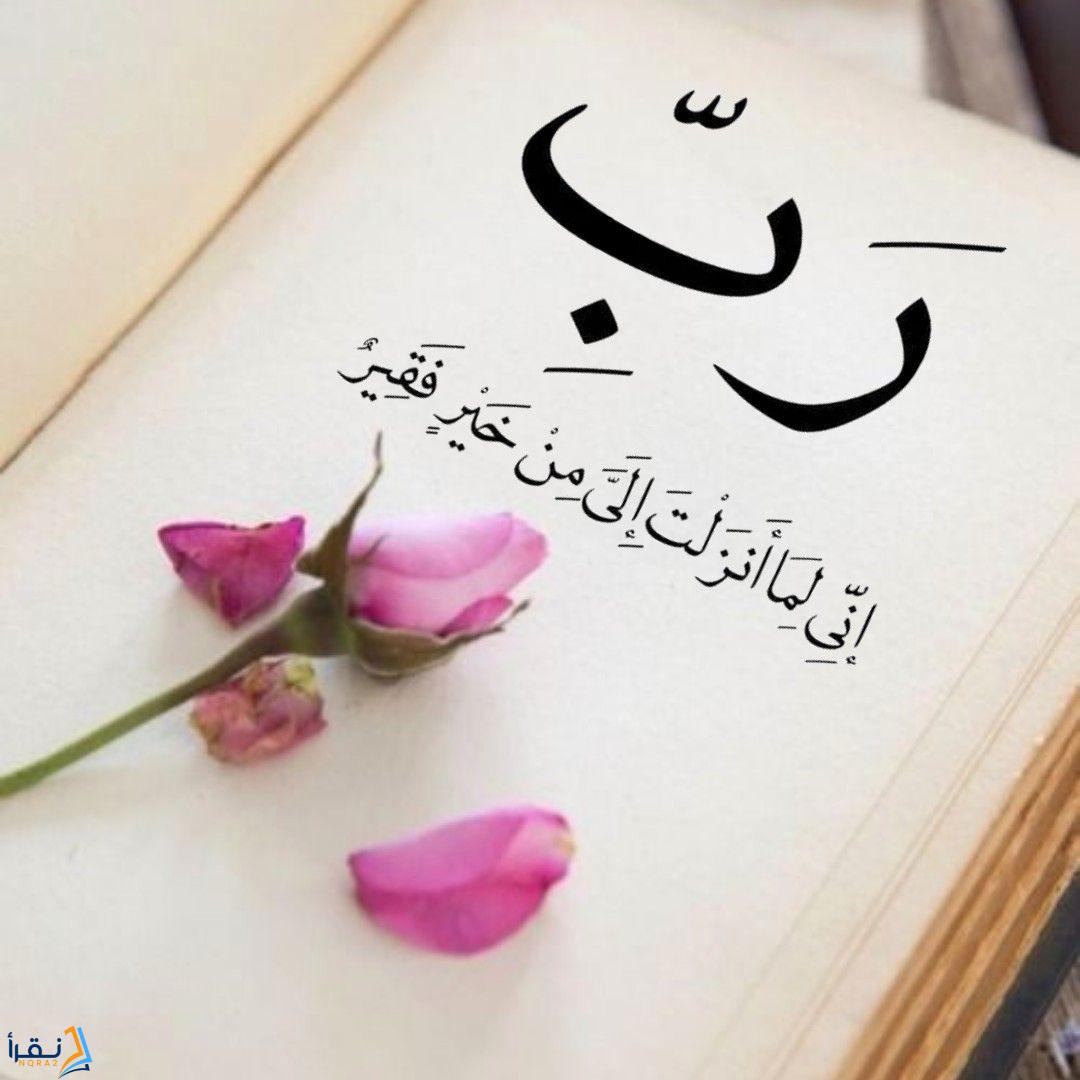 رَبِّ
إِنِّي لِمَا أَنزَلْتَ إِلَيَّ مِنْ خَيْرٍ فَقِيرٌ
نقرأ
NQRA2